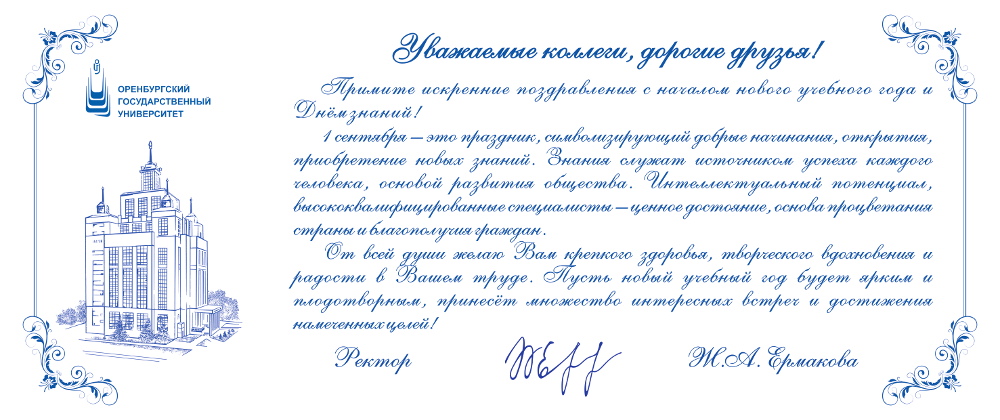 ОРЕНБУРГСКИЙ
ГОСУДАРСТВЕННЫЙ
УНИВЕРСИТЕТ
Уважаемые коллеги, дорогие друзья!
Примите искренние поздравления с началом нового учебного года и
Днём знаний!
1 сентября – это праздник, символизирующий добрые начинания, открытия,
приобретение новых знаний. Знания служат источником успеха каждого
человека, основой развития общества. Интеллектуальный потенциал,
высококвалифицированные специалисты – ценное достояние, основа процветания
страны и благополучия граждан.
От всей души желаю Вам крепкого здоровья, творческого вдохновения и
радости в Вашем труде. Пусть новый учебный год будет ярким и
плодотворным, принесёт множество интересных встреч и достижения
намеченных целей!
Ректор Ж.А. Ермакова